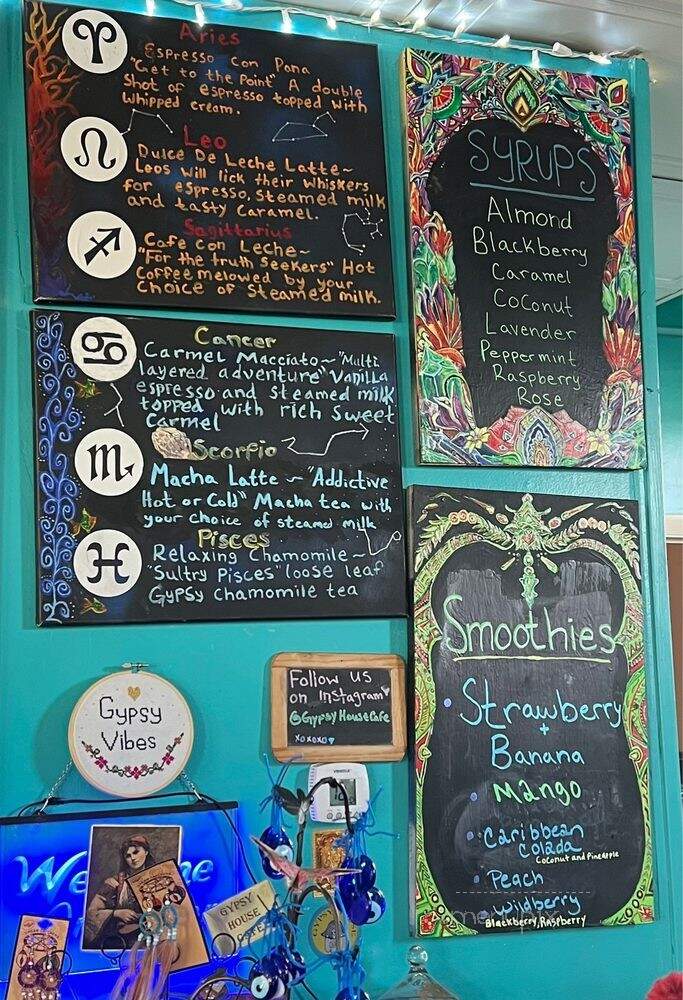 Aries
Espresso Con Pana
"Get to the Point" A double
Shot of espresso topped with
Whipped cream.
Leo
Dulce De Leche Latte~
Leos will lick their whiskers
for espresso, Steamed milk
and tasty Caramel.
Sagittarius
Cafe con Leche~
"For the truth Seekers" Hot
Coffee melowed by your
choice of Steamed milk.
Cancer
Carmel Macciato~"Multi
layered adventure" Vanilla
espresso and steamed milk
topped with rich sweet
Carmel
Scorpio
Macha Latte ~ "Addictive
Hot or Cold" Macha tea with
your choice of steamed milk
Pisces
Relaxing Chamomile~
"Sultry Pisces" loose leaf
Gypsy chamomile tea
SYRUPS
Almond
Blackberry
Caramel
Coconut
Lavender
Peppermint
Raspberry
Rose
Smoothies
• Strawberry
+
Banana
• Mango
• Caribbean
Colada
Coconut and Pineapple
• Peach
• Wildberry
Blackberry, Raspberry
Gypsy
Vibes
Follow us
on Instagram
@GypsyHouseCafe
xoxoxo
GYPSY
HOUSE